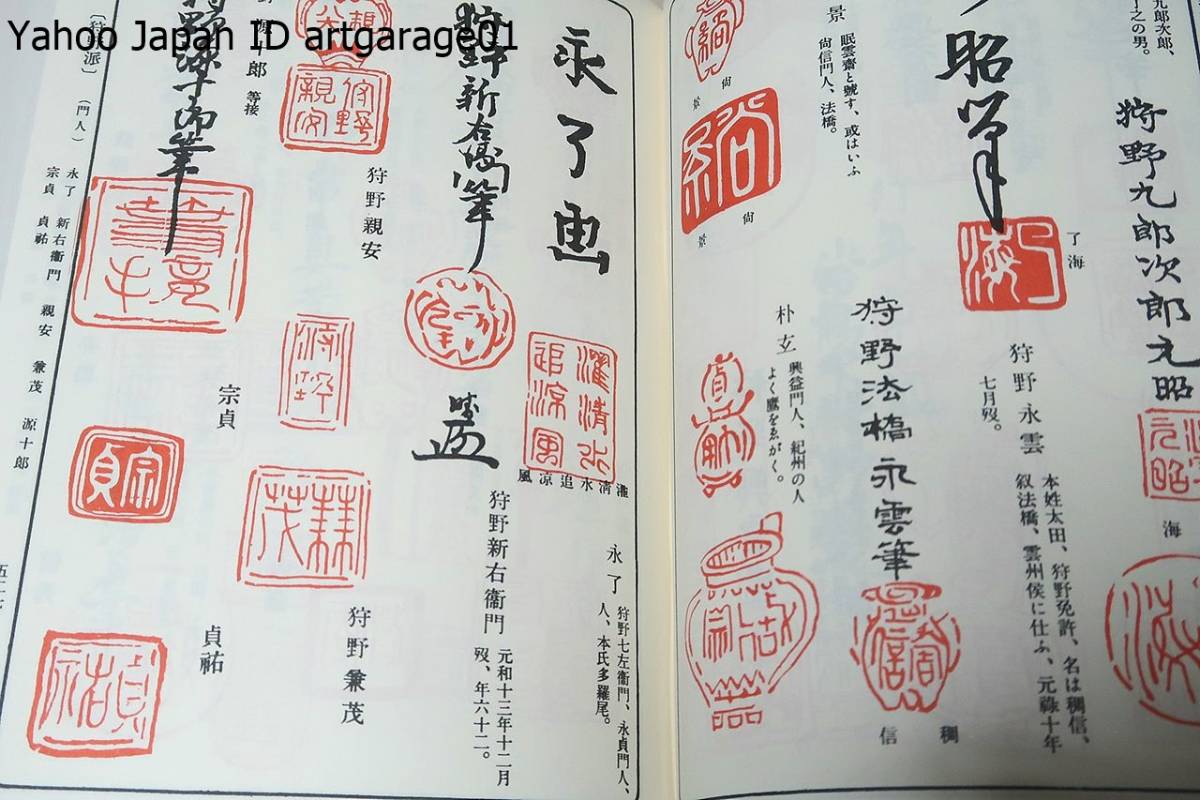 Yahoo Japan ID artgarage01
九郎次郎、
之の男。
狩野九郎次郎元昭
元昭
海
昭筆
了海
了海
狩野永雲
本姓太田、狩野免許、名は稠信、
叙法橋、雲州侯に仕ふ、元祿十年
七月歿。
狩野法橋永雲筆
稠信
景
眠雲齋と號す、或はいふ
尙信門人、法橋。
尙景
尙景
朴玄
興益門人、紀州の人
よく鷹をゑがく。
永了画
濯清水
追凉風
濯清水追凉風
永了
狩野七左衞門、永貞門人、
人、本氏多羅尾。
狩野新右衞門筆
狩野新右衞門
元和十三年十二月
歿、年六十二。
狩野親安
狩野
兼茂
狩野兼茂
郎
等接
宗貞
宗貞
貞祐
貞祐
〔狩野派〕
(門人)
永了 新右衞門 親安 兼茂 源十郎
宗貞 貞祐